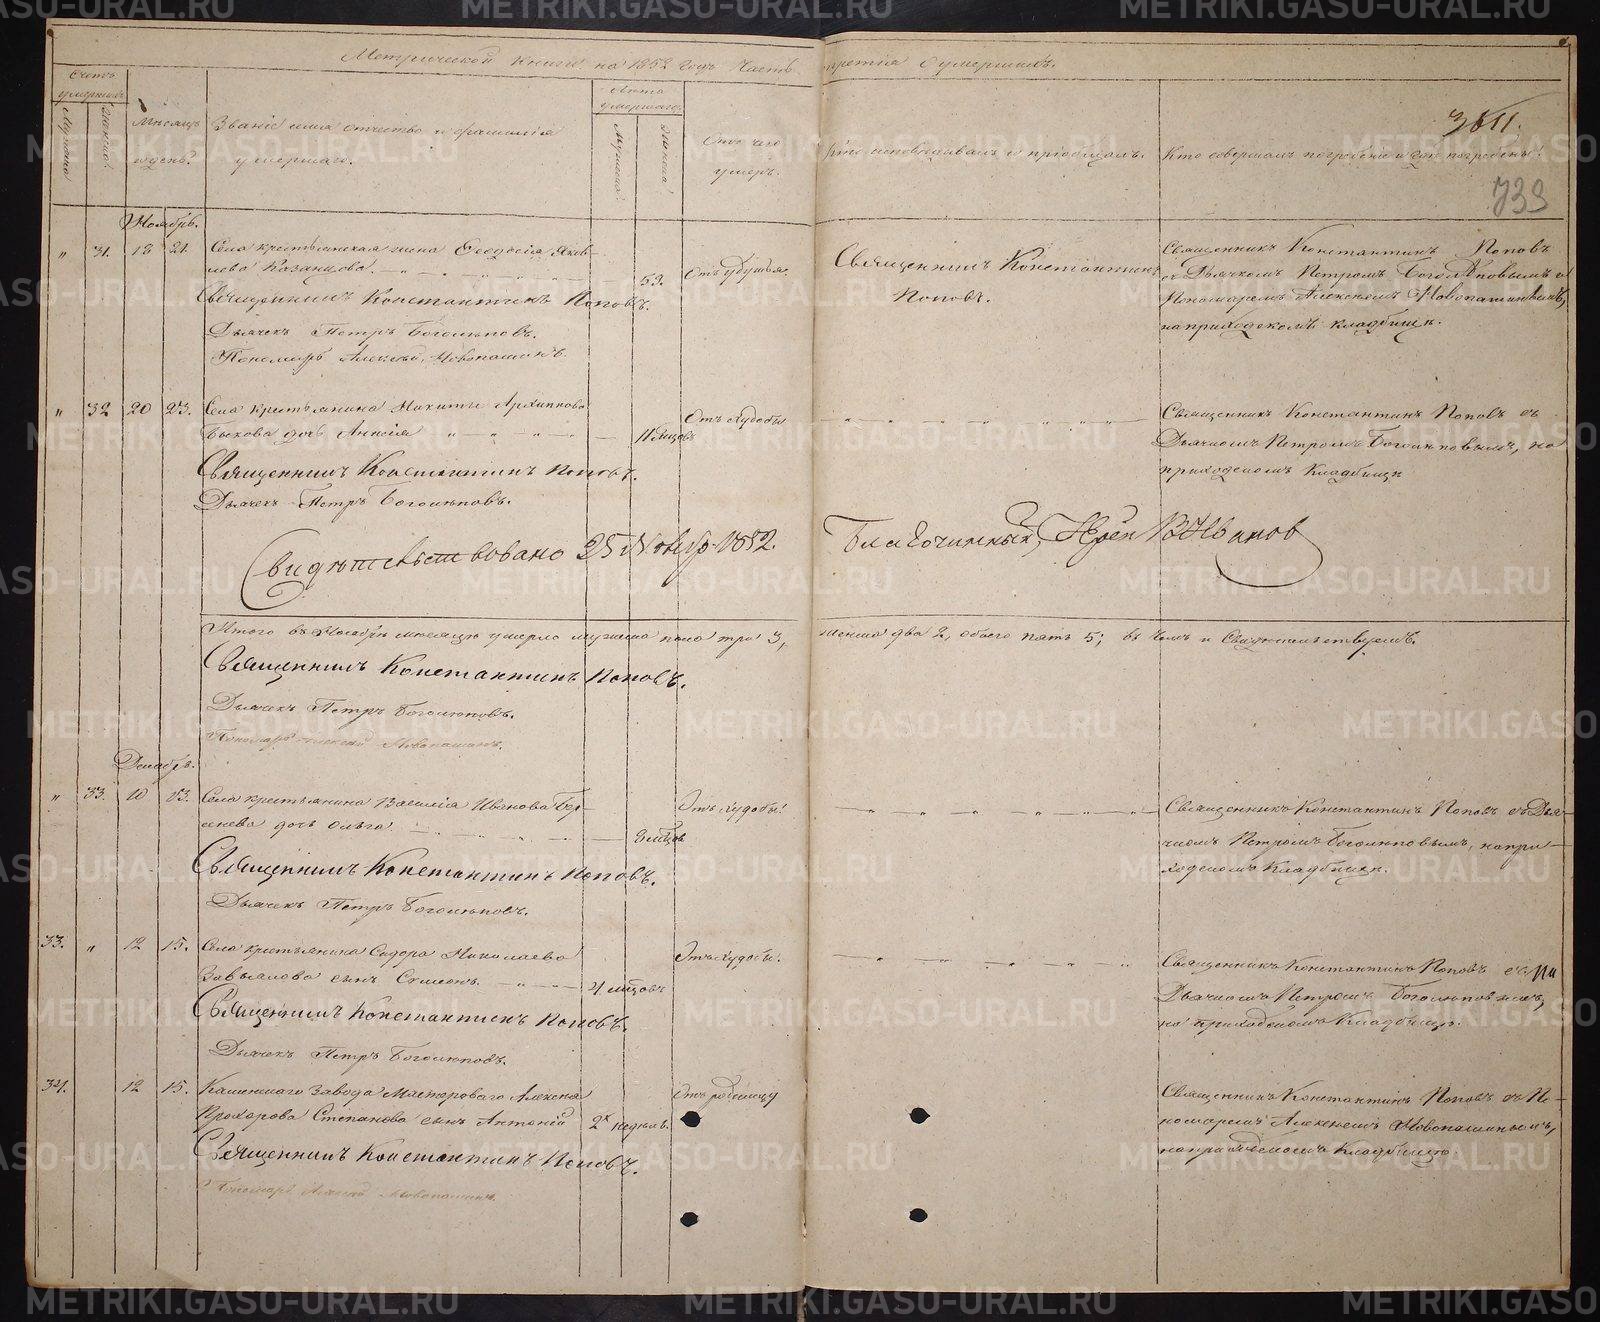 Метрической книги на 1852 годъ Часть третія о умершихъ.
Счетъ умершихъ
Мужеска
Женска
Мѣсяцъ и день.
Званіе имя отчество и фамилія умершаго.
Лѣта умершаго
Мужеска
Женска
Отъ чего умеръ.
Кто исповѣдывалъ и пріобщалъ.
Кто совершалъ погребеніе и гдѣ погребены.
739
Ноябрь.
" 31. 18 21. Села крестьянская жена Ѳеодосія Яков-
лева Казанцова. 53.
Священникъ Константинъ Поповъ.
Дьячекъ Петръ Боголѣповъ.
Пономарь Алексѣй Новопашинъ.
Священникъ Константинъ
Поповъ.
Священникъ Константинъ Поповъ
съ Дьячкомъ Петромъ Боголѣповымъ и
Пономаремъ Алексѣемъ Новопашинымъ,
на приходскомъ кладбищѣ.
" 32 20 23. Села крестьянина Никиты Архиппова
Быкова дочь Анисія 11 мѣсцовъ
Отъ худобы
Священникъ Константинъ Поповъ.
Дьячекъ Петръ Боголѣповъ.
Священникъ Константинъ Поповъ съ
Дьячкомъ Петромъ Боголѣповымъ, на
приходскомъ кладбищѣ
Свидѣтельствовано 25 Ноября 1852.
Благочинный, Іерей В Ивановъ
Итого въ Ноябрѣ мѣсяцѣ умерло мужеска пола три 3, женска два 2, обоего пять 5; въ чемъ и свидѣтельствуемъ.
Священникъ Константинъ Поповъ.
Дьячекъ Петръ Боголѣповъ.
Пономарь Алексѣй Новопашинъ.
Декабрь.
" 33. 10 13. Села крестьянина Василія Иванова
дочь Ольга 8 мѣсцов
Отъ худобы
Священникъ Константинъ Поповъ.
Дьячекъ Петръ Боголѣповъ.
Священникъ Константинъ Поповъ съ Дья-
чкомъ Петромъ Боголѣповымъ, на при-
ходскомъ кладбищѣ.
33. " 12 15. Села крестьянина Сидора Николаева
Завьялова сынъ Симеонъ. 4 мѣсцовъ
Отъ худобы.
Священникъ Константинъ Поповъ.
Дьячекъ Петръ Боголѣповъ.
Священникъ Константинъ Поповъ съ
Дьячкомъ Петромъ Боголѣповымъ,
на приходскомъ кладбищѣ.
34. 12 15. Каменскаго завода Мастероваго Алексѣя
Прохорова Степанова сынъ Антоній 2х недѣль.
Отъ родимцу
Священникъ Константинъ Поповъ.
Пономарь Алексѣй Новопашинъ.
Священникъ Константинъ Поповъ съ По-
номаремъ Алексѣемъ Новопашинымъ,
на приходскомъ кладбищѣ
METRIKI.GASO-URAL.RU